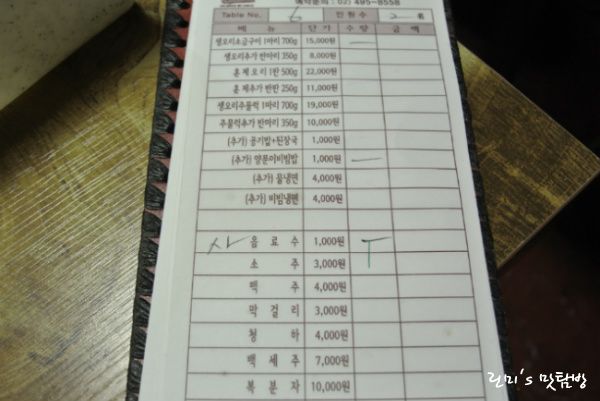 예약문의 : 02) 495-8558
Table No. 6 인원수 2 명
메 뉴 단 가 수 량 금 액
생오리소금구이 1마리 700g 15,000원 一
생오리추가 반마리 350g 8,000원
훈제오리 1판 500g 22,000원
훈제추가 반판 250g 11,000원
생오리주물럭 1마리 700g 19,000원
주물럭추가 반마리 350g 10,000원
(추가) 공기밥+된장국 1,000원
(추가) 양푼이비빔밥 1,000원 一
(추가) 물냉면 4,000원
(추가) 비빔냉면 4,000원
사 음 료 수 1,000원 T
소 주 3,000원
맥 주 4,000원
막 걸 리 3,000원
청 하 4,000원
백 세 주 7,000원
복 분 자 10,000원
린미's 맛탐방